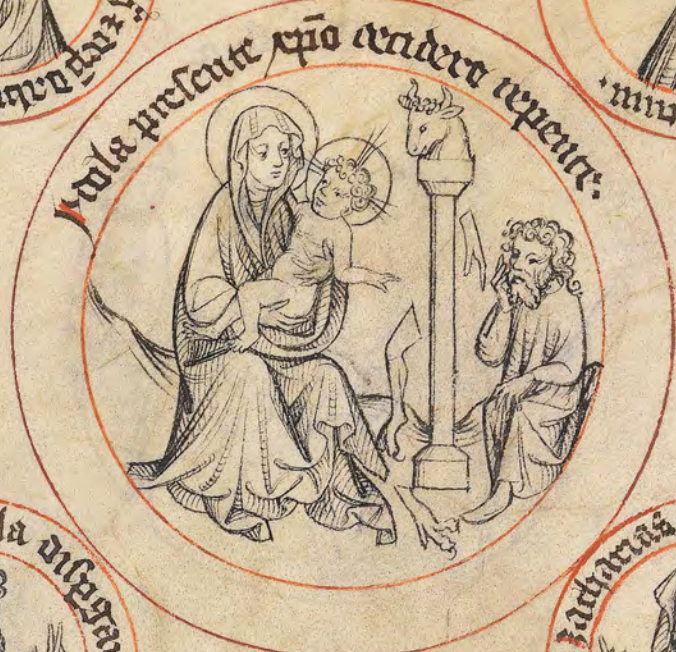 Ydola presente xp̄o cecidere repente.
la dispga
zacharias